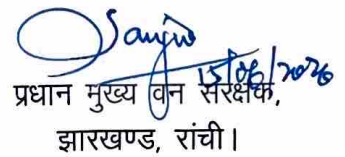 Sanjiv
15/06/2026
प्रधान मुख्य वन संरक्षक,
झारखण्ड, रांची।